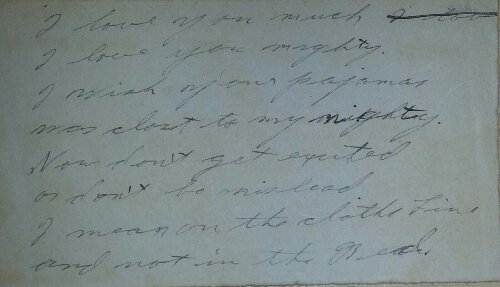 I love you much
I love you mighty.
I wish your pajamas
was close to my nighty.
Now don't get excited
or don't be mislead
I mean on the cloths Line
and not in the Bed.